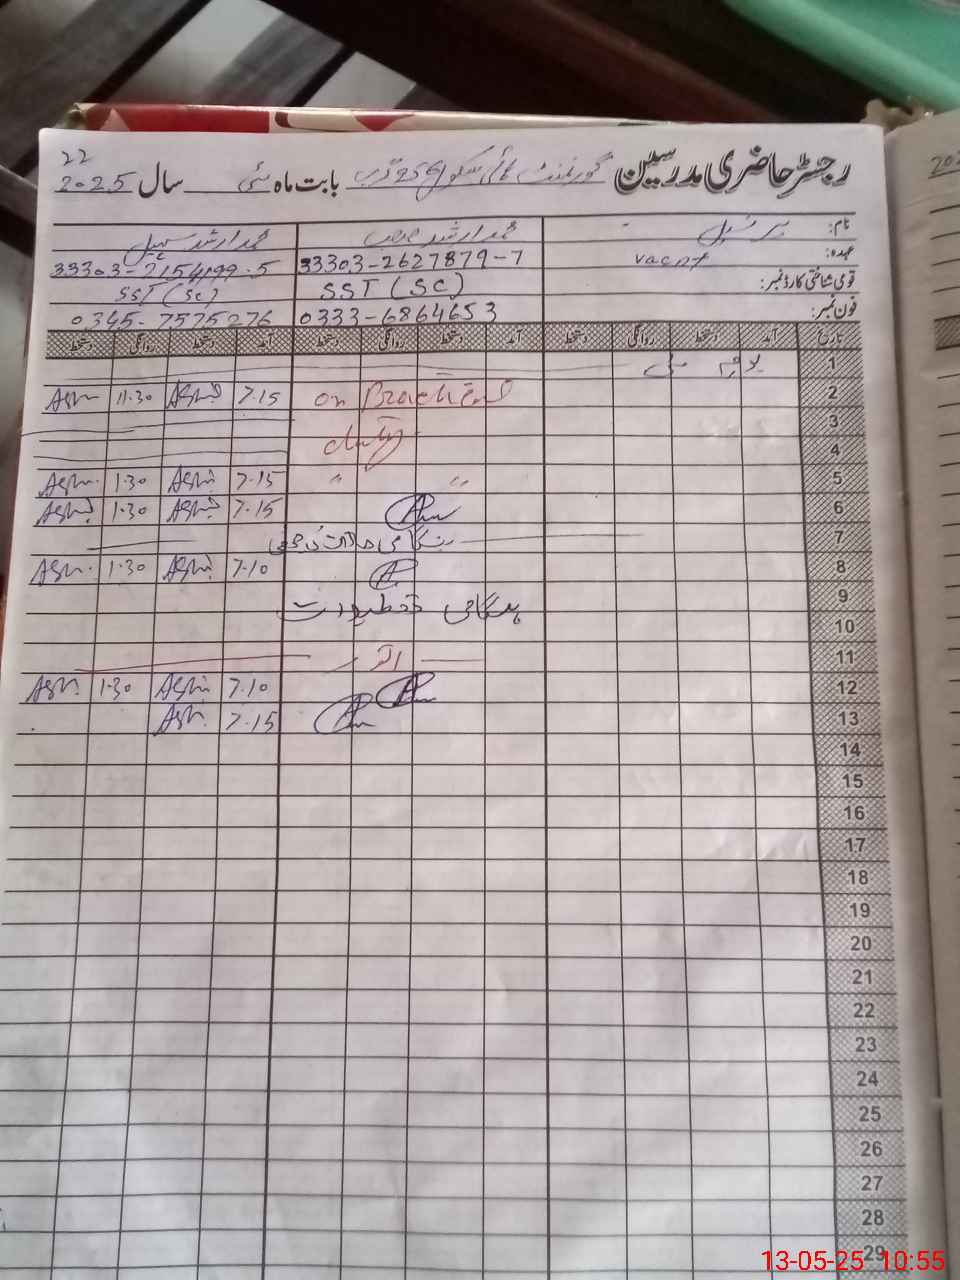 رجسٹر حاضری مدرسین گورنمنٹ ہائی سکول 256 گ ب بابت ماہ مئی سال 2025
22
نام: پرنسپل محمد ارشد محمد ارشد سہیل
عہدہ: vacnt 33303-2627879-7 33303-2154199-5
قومی شناختی کارڈ نمبر: SST (SC) SST (SC)
فون نمبر: 0333-6864653 0345-7575276
تاریخ آمد دستخط روانگی دستخط آمد دستخط روانگی دستخط آمد دستخط روانگی دستخط
1 یوم مئی
2 on duty 7.15 11.30
3
4
5 " " 7.15 1.30
6 7.15 1.30
7 ہنگامی حالات کی چھٹی
8 7.10 1.30
9 ہنگامی تعطیلات
10
11 اتوار
12 7.10 1.30
13 7.15
14
15
16
17
18
19
20
21
22
23
24
25
26
27
28
29
13-05-25 10:55